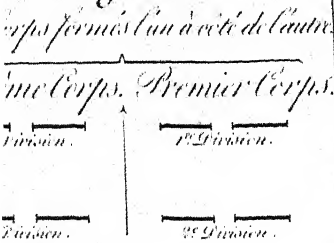 orps formés l'un à côté de l'autre.
ème Corps. Premier Corps.
Division. 1re Division.
Division. 2e Division.